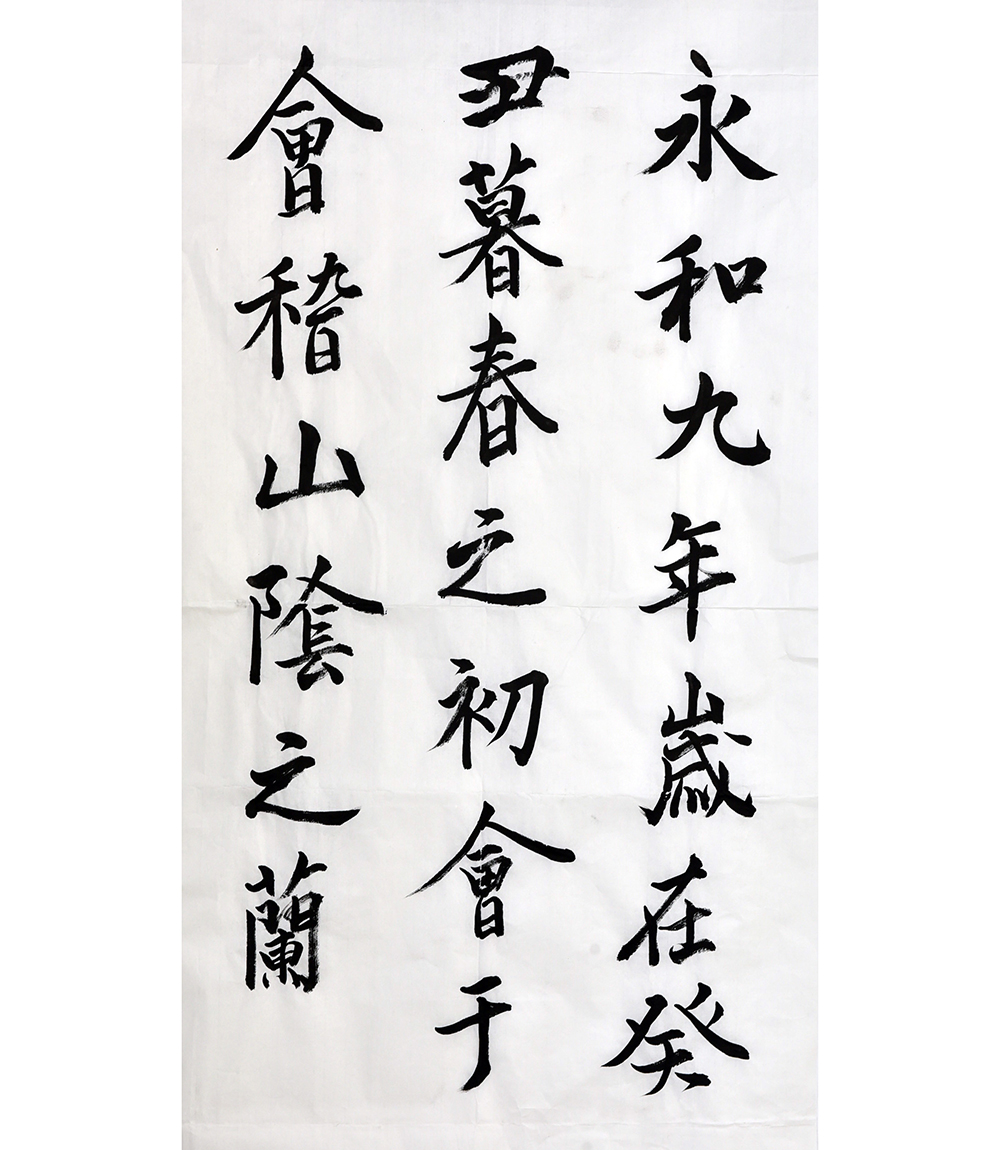 永和九年歲在癸
丑暮春之初會于
會稽山陰之蘭